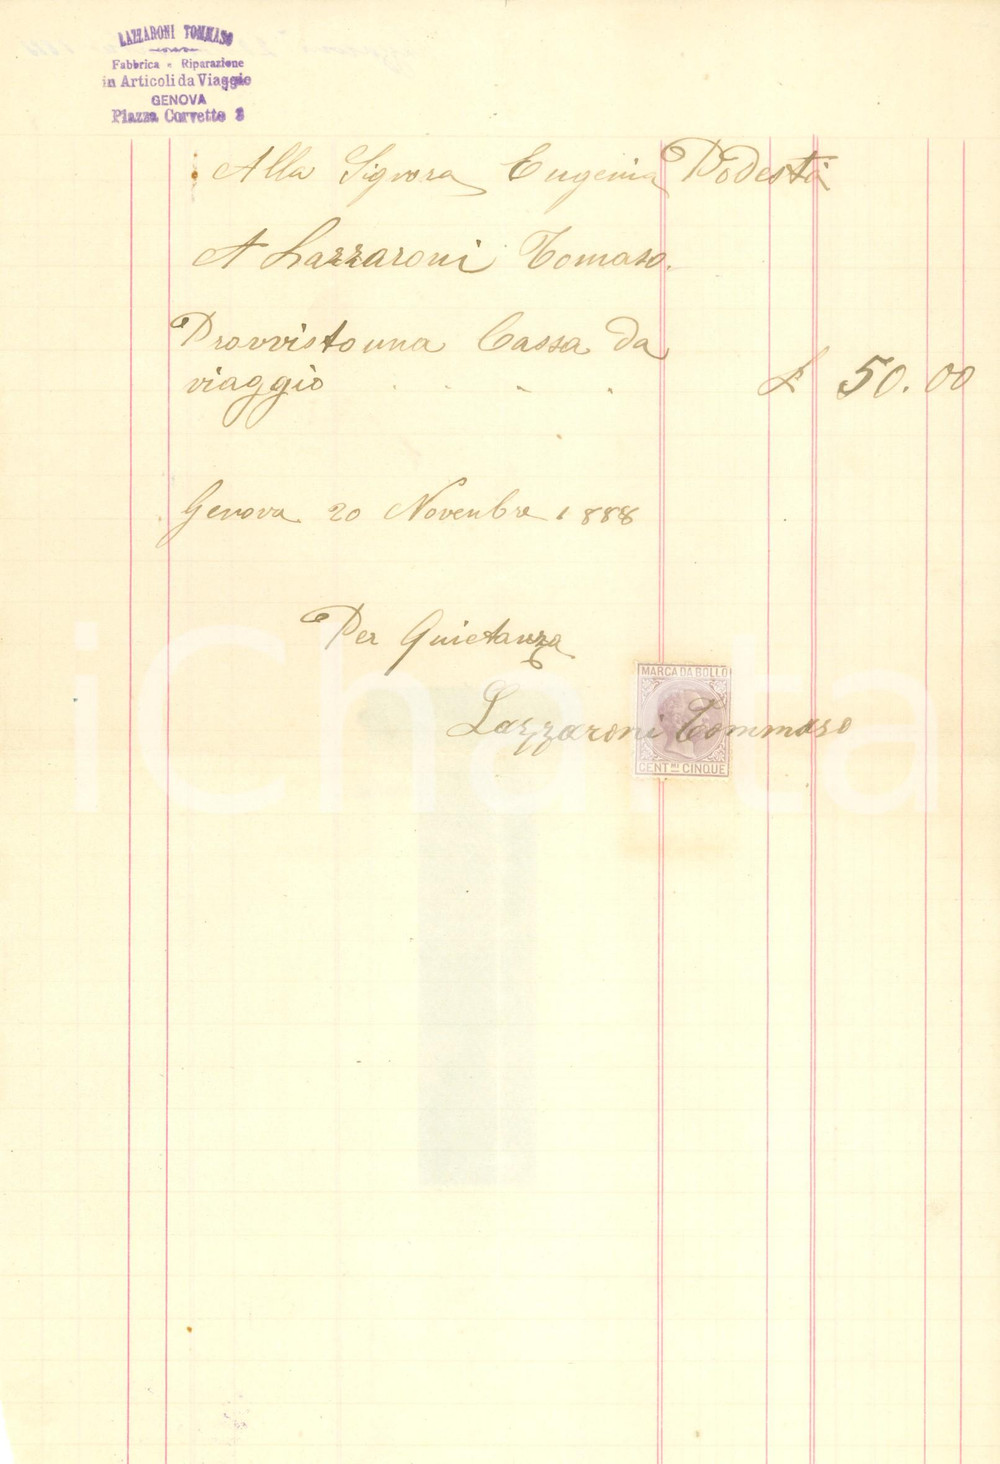 LAZZARONI TOMMASO
Fabbrica e Riparazione
in Articoli da Viaggio
GENOVA
Piazza Corvetto 3
Alla Signora Eugenia Podestà
A Lazzaroni Tomaso.
Provvisto una Cassa da
viaggio . . . . £ 50.00
Genova 20 Novembre 1888
Per Quietanza
MARCA DA BOLLO
Lazzaroni Tommaso
CENT.MI CINQUE
iCharta